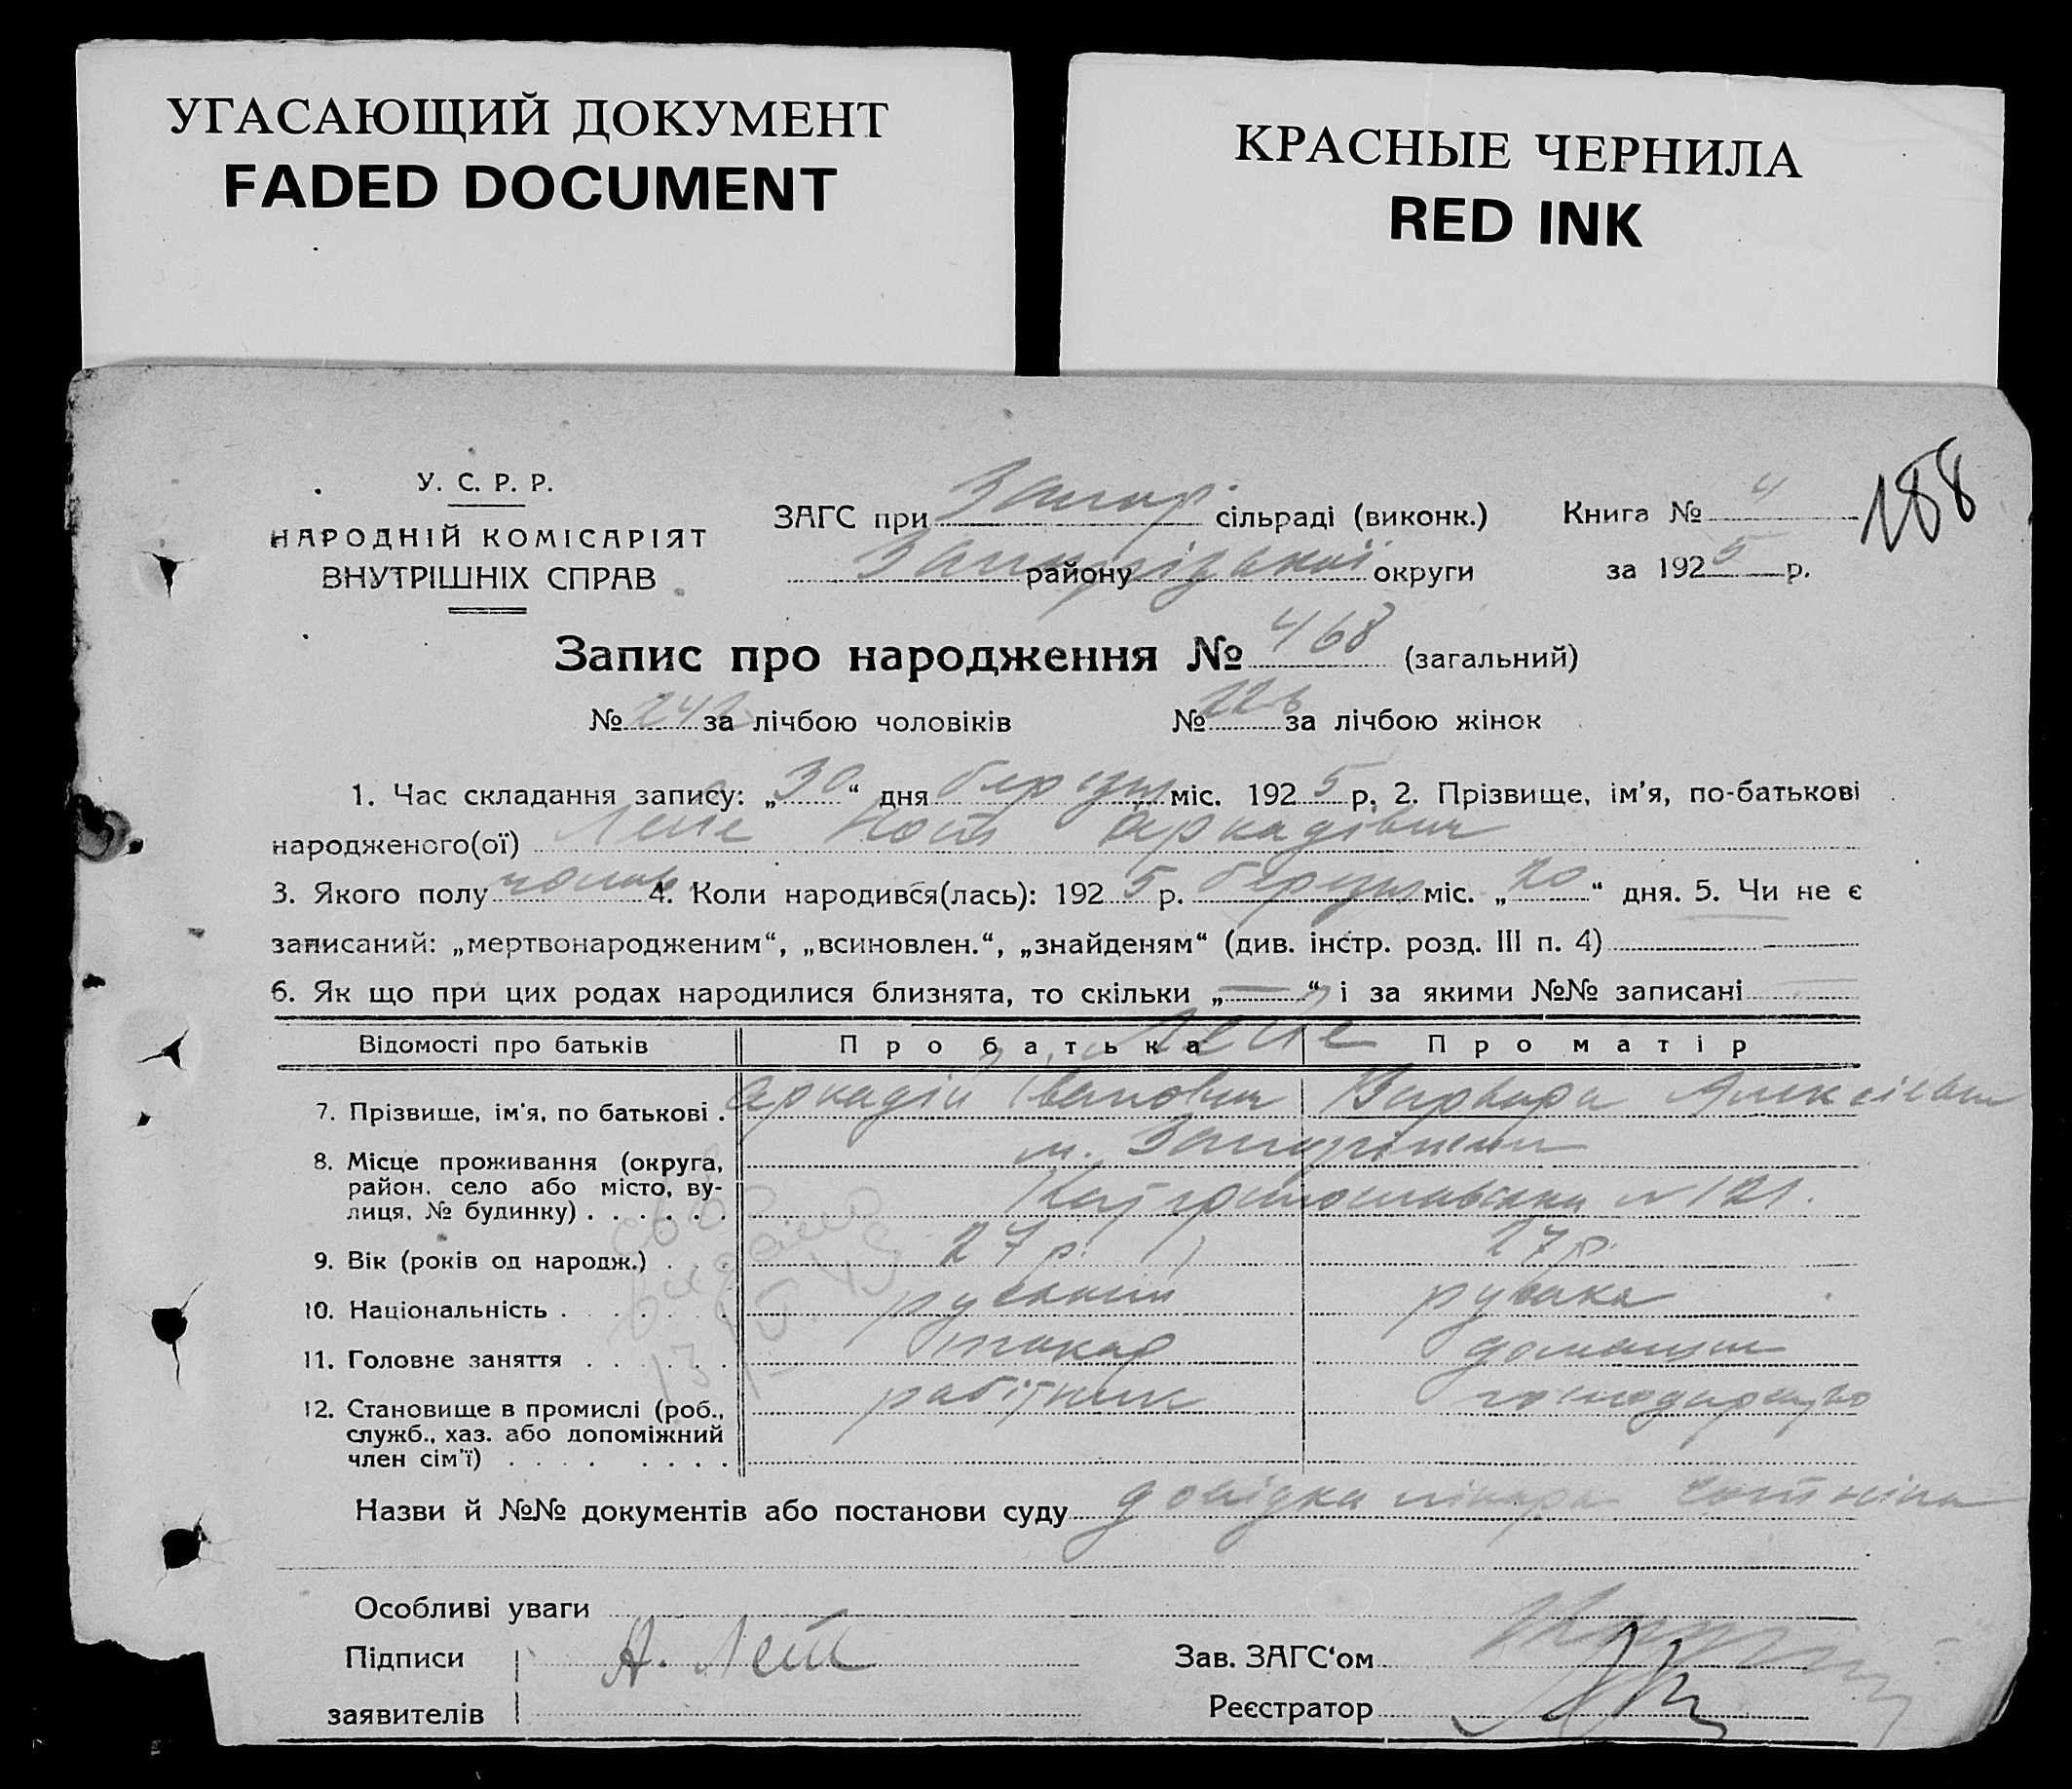 УГАСАЮЩИЙ ДОКУМЕНТ
FADED DOCUMENT
КРАСНЫЕ ЧЕРНИЛА
RED INK
188
У. С. Р. Р.
НАРОДНІЙ КОМІСАРІЯТ
ВНУТРІШНІХ СПРАВ
ЗАГС при Запор. сільраді (виконк.)
Запорізької району округи
Книга № 4
за 1925 р.
Запис про народження № 468 (загальний)
№ 242 за лічбою чоловіків № 226 за лічбою жінок
1. Час складання запису: „30“ дня березня міс. 1925 р. 2. Прізвище, ім'я, по-батькові
народженого(ої) Аркадієвич
3. Якого полу чолов. 4. Коли народився(лась): 1925 р. березня міс. „20“ дня. 5. Чи не є
записаний: „мертвонародженим“, „всиновлен.“, „знайденям“ (див. інстр. розд. III п. 4)
6. Як що при цих родах народилися близнята, то скільки „—“ і за якими №№ записані —
Відомості про батьків Про батька Про матір
7. Прізвище, ім'я, по батькові . Аркадій Іванович Варвара
8. Місце проживання (округа, район. село або місто, вулиця, № будинку) . . . . . . м. Запоріжжя
№ 121.
9. Вік (років од народж.) . . . 27 р. 27 р.
10. Національність . . . . . . . руський руська
11. Головне заняття . . . . . . токар домашнє
12. Становище в промислі (роб., робітник господарство
служб., хаз. або допоміжний
член сім'ї) . . . . . . . .
Назви й №№ документів або постанови суду довідка лікаря
Особливі уваги
Підписи А.
заявителів
Зав. ЗАГС‘ом
Реєстратор